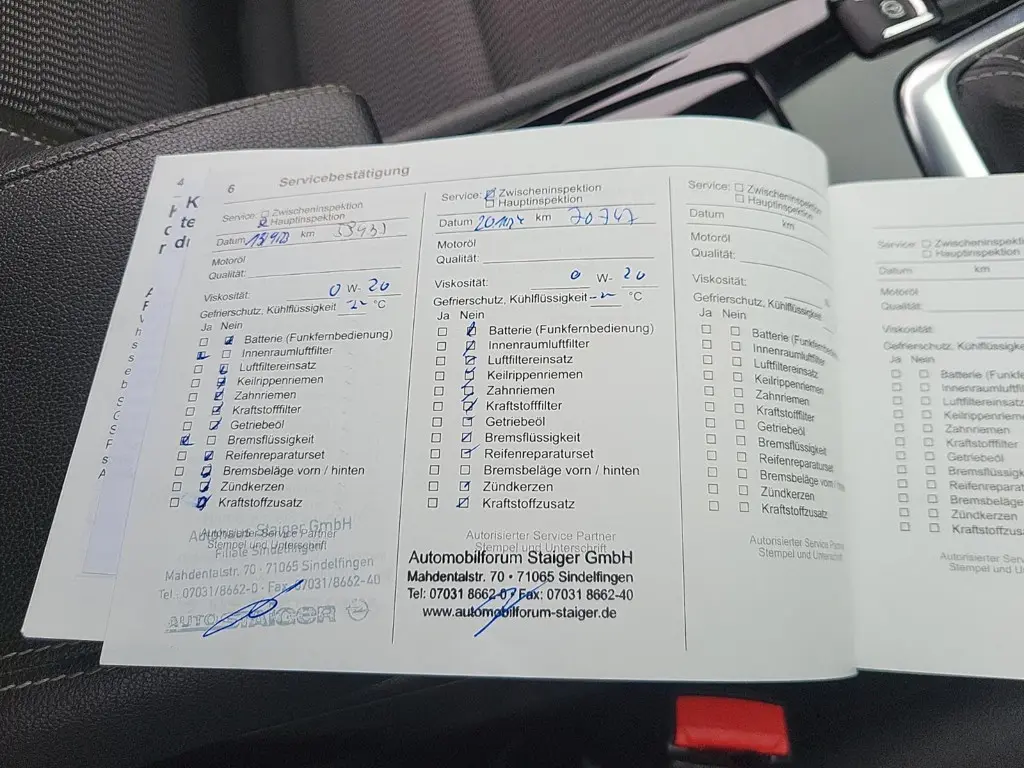 4
K
te
6 Servicebestätigung
Service: Zwischeninspektion
Hauptinspektion
Datum km
Motoröl
Qualität:
Viskosität: 0 W- 20
Gefrierschutz, Kühlflüssigkeit °C
Ja Nein
Batterie (Funkfernbedienung)
Innenraumluftfilter
Luftfiltereinsatz
Keilrippenriemen
Zahnriemen
Kraftstofffilter
Getriebeöl
Bremsflüssigkeit
Reifenreparaturset
Bremsbeläge vorn / hinten
Zündkerzen
Kraftstoffzusatz
Autorisierter Service Partner
Stempel und Unterschrift
Staiger GmbH
Filiale Sindelfingen
Mahdentalstr. 70 · 71065 Sindelfingen
Tel.: 07031/8662-0 · Fax 07031/8662-40
AUTO STAIGER
Service: Zwischeninspektion
Hauptinspektion
Datum km 70747
Motoröl
Qualität:
Viskosität: 0 W- 20
Gefrierschutz, Kühlflüssigkeit °C
Ja Nein
Batterie (Funkfernbedienung)
Innenraumluftfilter
Luftfiltereinsatz
Keilrippenriemen
Zahnriemen
Kraftstofffilter
Getriebeöl
Bremsflüssigkeit
Reifenreparaturset
Bremsbeläge vorn / hinten
Zündkerzen
Kraftstoffzusatz
Autorisierter Service Partner
Stempel und Unterschrift
Automobilforum Staiger GmbH
Mahdentalstr. 70 · 71065 Sindelfingen
Tel: 07031 8662-0 · Fax: 07031 8662-40
www.automobilforum-staiger.de
Service: Zwischeninspektion
Hauptinspektion
Datum km
Motoröl
Qualität:
Viskosität:
Gefrierschutz, Kühlflüssigkeit
Ja Nein
Batterie (Funkfernbedienung
Innenraumluftfilter
Luftfiltereinsatz
Keilrippenriemen
Zahnriemen
Kraftstofffilter
Getriebeöl
Bremsflüssigkeit
Reifenreparaturset
Bremsbeläge vorn
Zündkerzen
Kraftstoffzusatz
Autorisierter Service Partn
Stempel und Unterschrif
Service: Zwischeninspekti
Hauptinspektion
Datum km
Motoröl
Qualität:
Viskosität:
Gefrierschutz, Kühlflüssigke
Ja Nein
Batterie (Funkf
Innenraumluftfi
Luftfiltereinsatz
Keilrippenriem
Zahnriemen
Kraftstofffilter
Getriebeöl
Bremsflüssigk
Reifenreparat
Bremsbeläge
Zündkerzen
Kraftstoffzus
Autorisierter Serv
Stempel und U